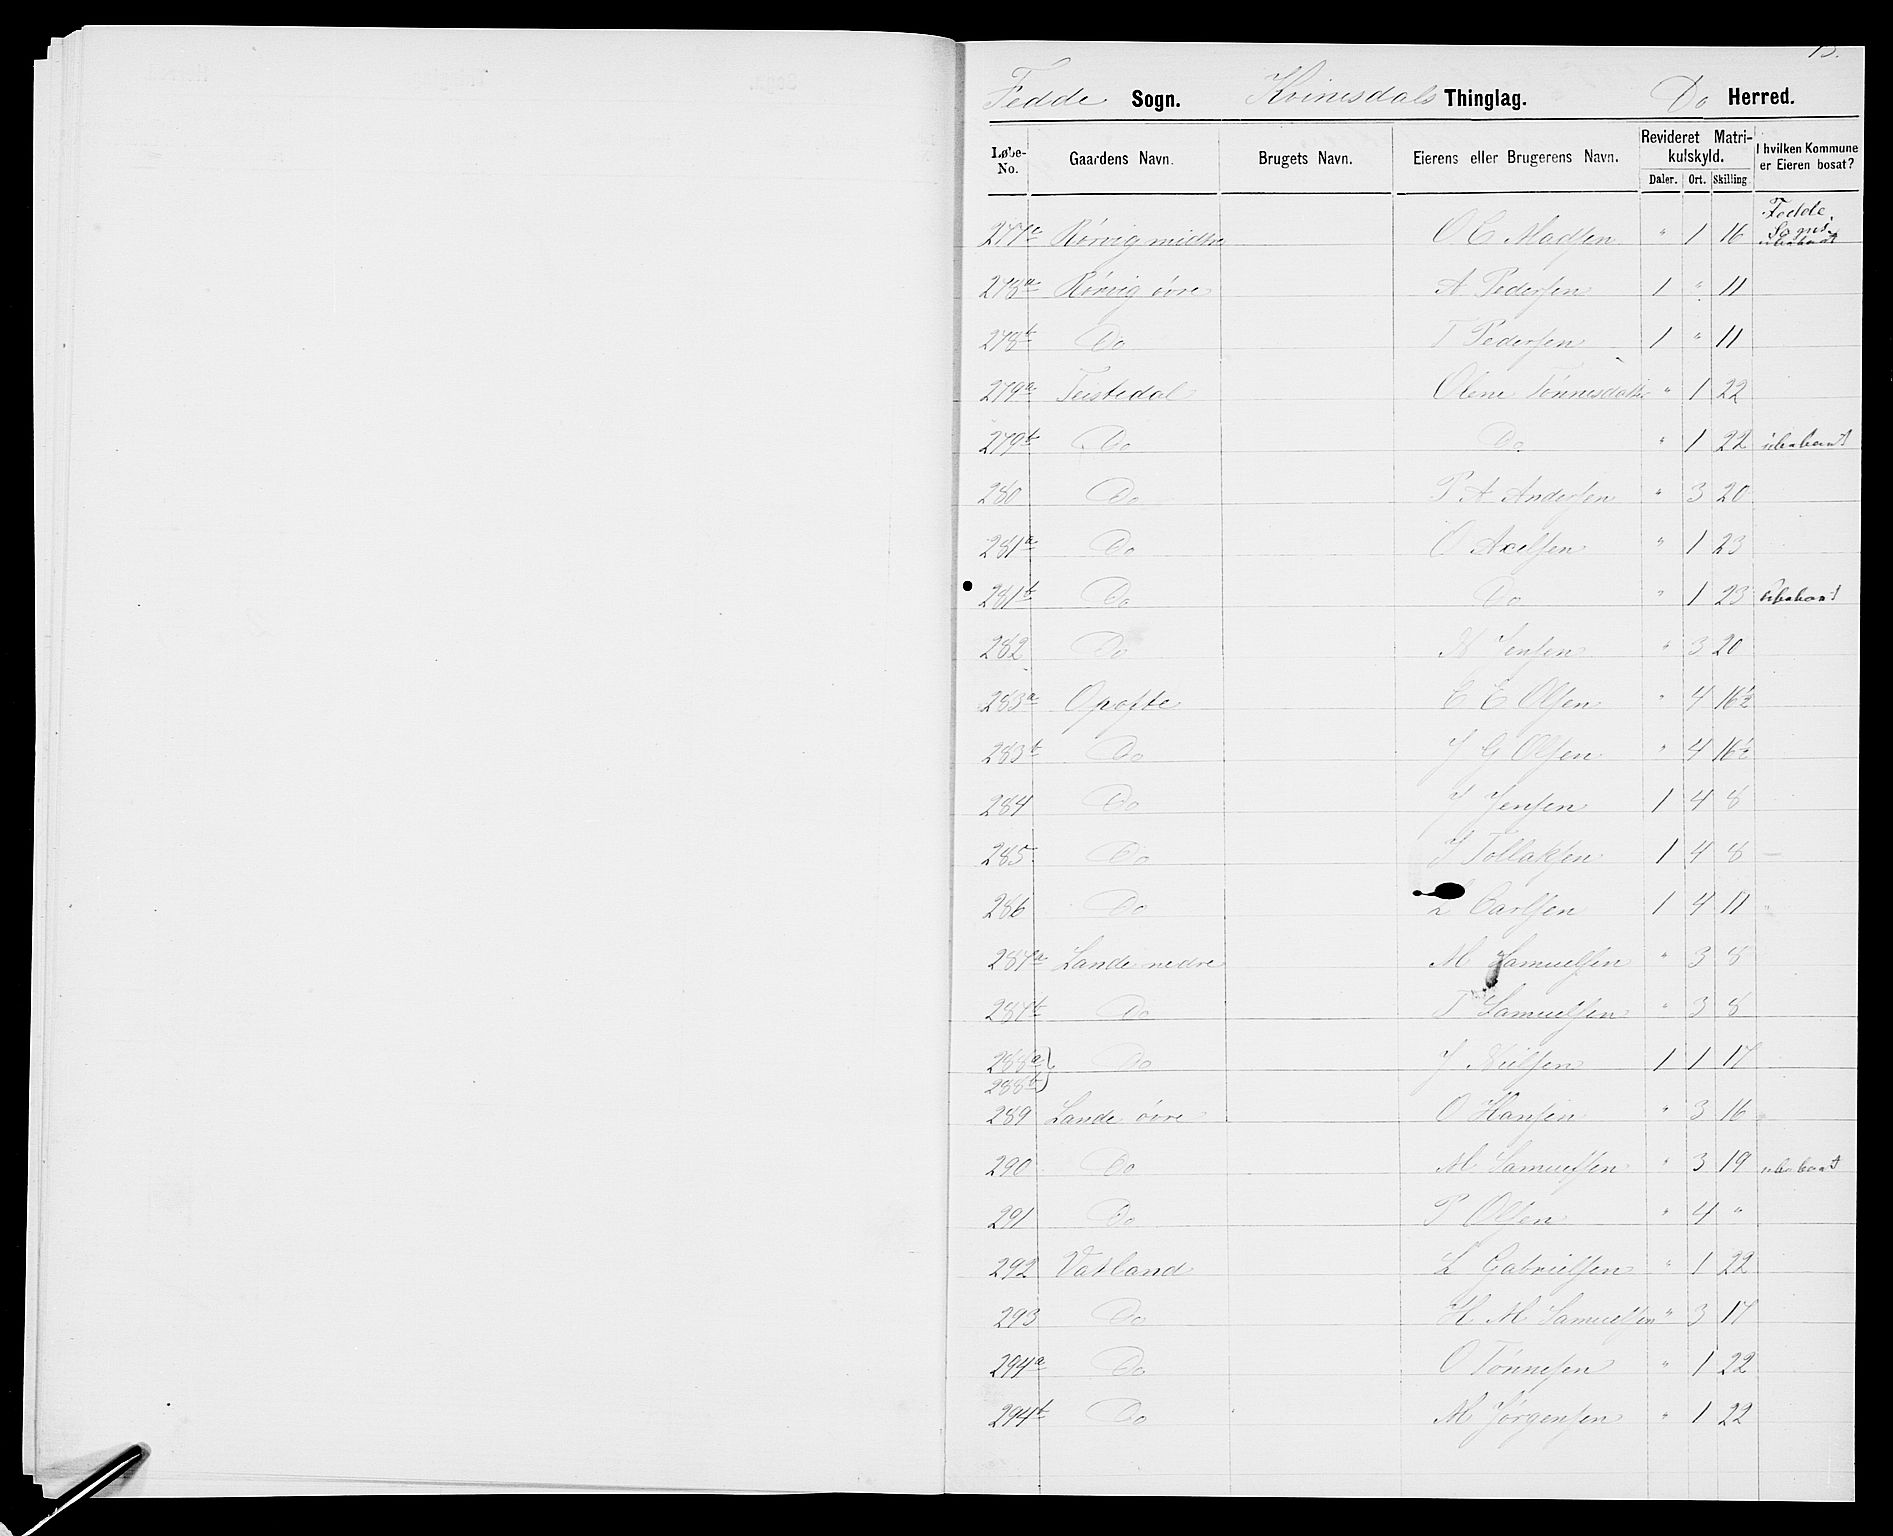 13.
Fedde Sogn. Kvinesdals Thinglag. Do Herred.
Løbe-No. Gaardens Navn. Brugets Navn. Eierens eller Brugerens Navn. Revideret Matrikulskyld. Daler. Ort. Skilling I hvilken Kommune er Eieren bosat?
277c Rørvig midtre O C Madsen " 1 16 Fedde Sogn. ubeboet
278a Rørvig øvre A Pedersen 1 " 11
278b Do T Pedersen 1 " 11
279a Teistedal Olene Tønnesdatter " 1 22
279b Do Do " 1 22 ubeboet
280 Do P A Andersen " 3 20
281a Do O Axelsen " 1 23
281b Do Do " 1 23 ubeboet
282 Do N Jensen " 3 20
283a Opofte E E Olsen " 4 16½
283b Do J G Olsen " 4 16½
284 Do J Jensen 1 4 8
285 Do J Tollaksen 1 4 8
286 Do L Carlsen 1 4 11
287a Lande nedre M Samuelsen " 3 8
287b Do T Samuelsen " 3 8
288a } Do J Nilsen 1 1 17
288b }
289 Lande øvre O Hansen " 3 16
290 Do M Samuelsen " 3 19 ubeboet
291 Do P Olsen " 4 "
292 Vatland L Gabrielsen " 1 22
293 Do H M Samuelsen " 3 17
294a Do O Tønnesen " 1 22
294b Do M Jørgensen " 1 22